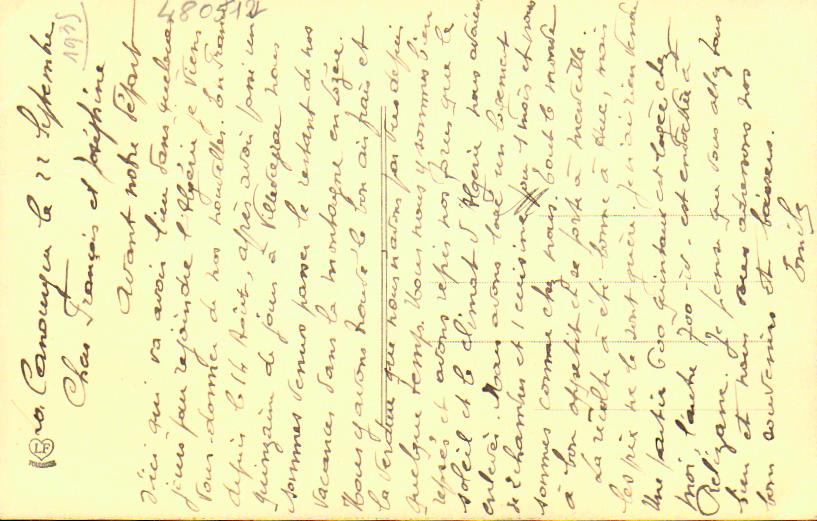 480512
La Canourgue le 22 Septembre
1935
Chers François et Joséphine
Avant notre départ
d'ici qui va avoir lieu dans quelques
jours pour rejoindre l'Algérie je viens
vous donner de nos nouvelles. En France
depuis le 14 Août, après avoir passé une
quinzaine de jours à nous
sommes venus passer le restant de nos
vacances dans la montagne en Lozère.
Nous y avons trouvé le bon air frais et
la verdure que nous n'avons pas vus depuis
quelque temps. Nous nous y sommes bien
reposés et avons repris nos joues que le
soleil et le climat d'Algérie nous avaient
enlevés. Nous avons loué un logement
de 2 chambres et 1 cuisine pour 1 mois et nous
sommes comme chez nous. Tout le monde
a bon appétit et se porte à merveille.
La récolte a été bonne à mais
les prix ne le sont guère. Je n'ai rien vendu
Une partie 600 quintaux est logée chez
moi, l'autre 700 est à
Relizane. Je pense que vous allez tous
bien et nous vous adressons nos
bons souvenirs et baisers.
Emile
LF
TOULOUSE